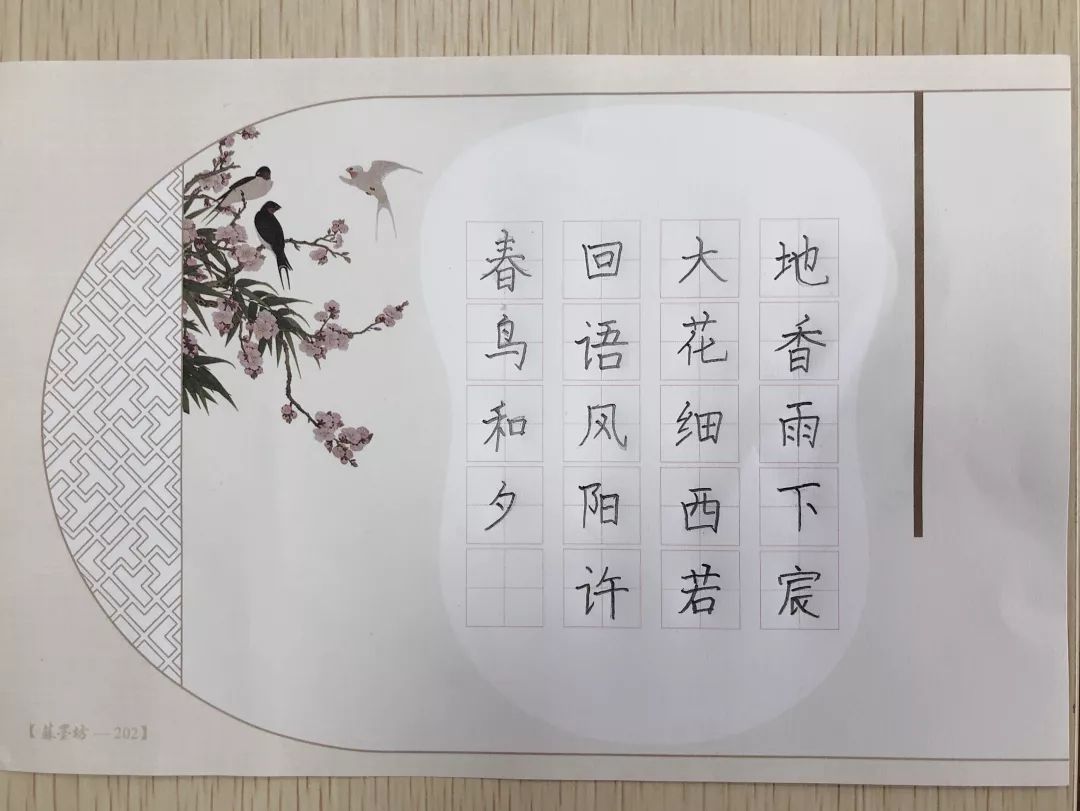 春回大地
鸟语花香
和风细雨
夕阳西下
许若宸
【蘇墨坊—202】